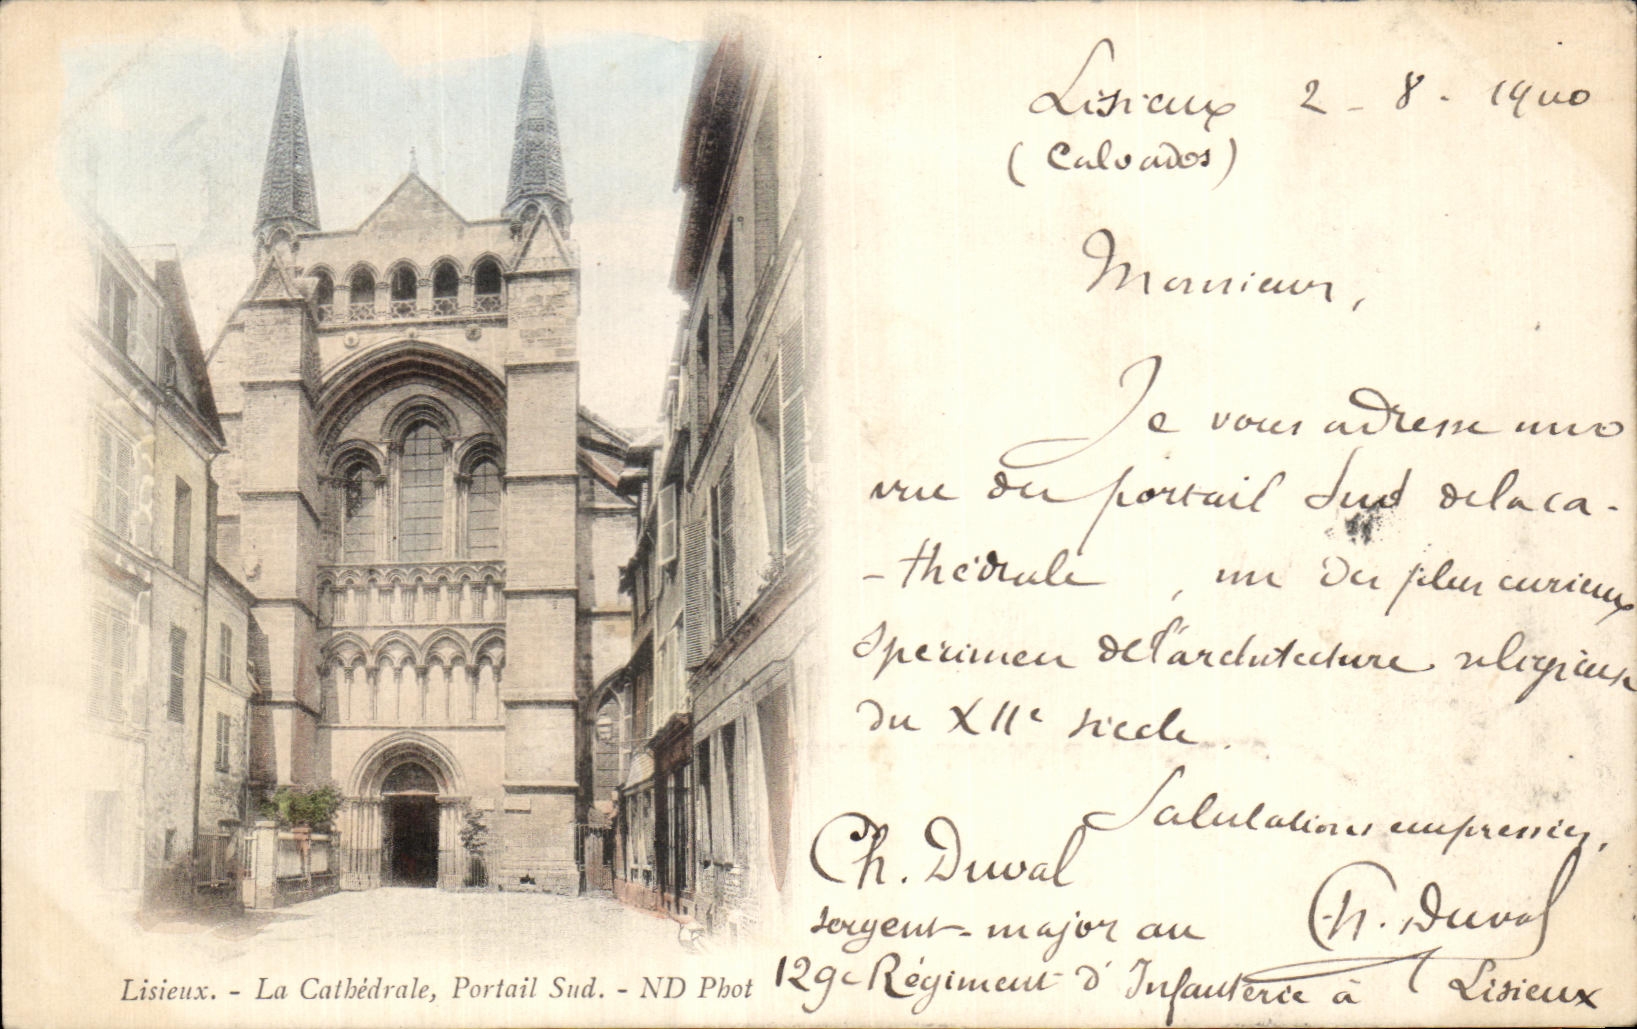 Lisieux 2 - 8 - 1900
(Calvados)
Monsieur,
Je vous adresse une
vue du portail Sud de la ca-
- thédrale, un des plus curieux
spécimen de l'architecture religieuse
du XIIe siècle.
Salutations empressées,
Ch. Duval
Ch. Duval
sergent-major au
129e Régiment d'Infanterie à Lisieux
Lisieux. - La Cathédrale, Portail Sud. - ND Phot